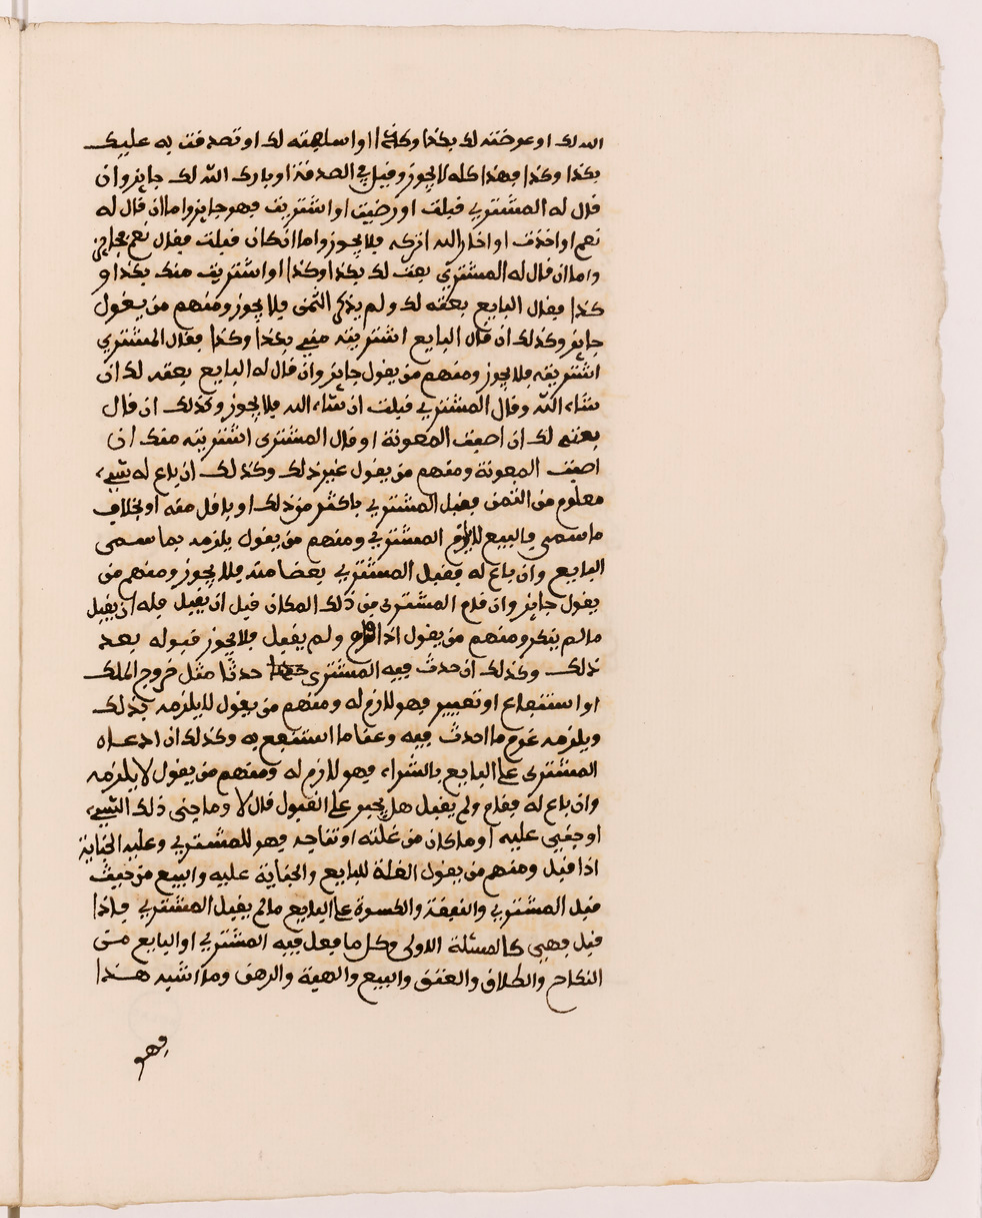 الله لك او عوضته لك بكذا وكذا او اسلهمته لك او تصدقت به عليك
بكذا وكذا فهذا كله لا يجوز وقيل في الصدقة او بارك الله لك جايز وان
قال له المشتري قبلت او رضيت او اشتريت فهو جايز واما ان قال له
نعم او اخذت او اخار الله اتركه فلا يجوز واما ان كان قبلت فقال نعم فجايز
واما ان قال له المشتري بعت لك بكذا وكذا او اشتريت منك بكذا و
كذا فقال البايع بعته لك ولم يذكر الثمن فلا يجوز ومنهم من يقول
جايز وكذلك ان قال البايع اشتريته مني بكذا وكذا فقال المشتري
اشتريته فلا يجوز ومنهم من يقول جايز وان قال له البايع بعته لك ان
شاء الله وقال المشتري قبلت ان شاء الله فلا يجوز وكذلك ان قال
بعته لك ان اصبت المعونة او قال المشتري اشتريته منك ان
اصبت المعونة ومنهم من يقول غير ذلك وكذلك ان باع له شيء
معلوم من الثمن فقبل المشتري باكثر من ذلك او باقل منه او بخلاف
ما سمى في البيع المشتري ومنهم من يقول يلزمه بما سمى
البايع وان باع له فقبل المشتري بعضا منه فلا يجوز ومنهم من
يقول جايز وان قام المشتري من ذلك المكان قبل ان يقبل فله ان يقبل
ما لم ينكر ومنهم من يقول اذا قام ولم يقبل فلا يجوز قبوله بعد
ذلك وكذلك ان حدث فيه المشتري حدثا مثل خروج الملك
او استنفاع او تغيير فهو لازم له ومنهم من يقول لا يلزمه بذلك
ويلزمه غرم ما احدث فيه وعناء ما استنفع به وكذلك ان ادعاه
المشتري على البايع بالشراء فهو لازم له ومنهم من يقول لا يلزمه
وان باع له فقام ولم يقبل هل يجبر على القبول قال لا وما جنى ذلك الشيء
او جني عليه او ما كان من غلته او نتاجه فهو للمشتري وعليه الجناية
اذا قبل ومنهم من يقول الغلة للبايع والجناية عليه والبيع من حيث
قبل المشتري والنفقة والكسوة على البايع ما لم يقبل المشتري فاذا
قبل فهي كالمسئلة الاولى وكل ما فعل فيه المشتري او البايع من
النكاح والطلاق والعتق والبيع والهبة والرهن وما اشبه هذا
فهو